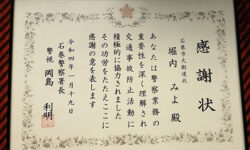 感謝状
石巻市大街道北
堀内みよ殿
あなたは警察業務の
重要性を深く理解され
交通事故防止活動に
積極的に協力されました
その功労をたたえここに
感謝の意を表します
令和四年一月十九日
石巻警察署長
警視 岡島利明